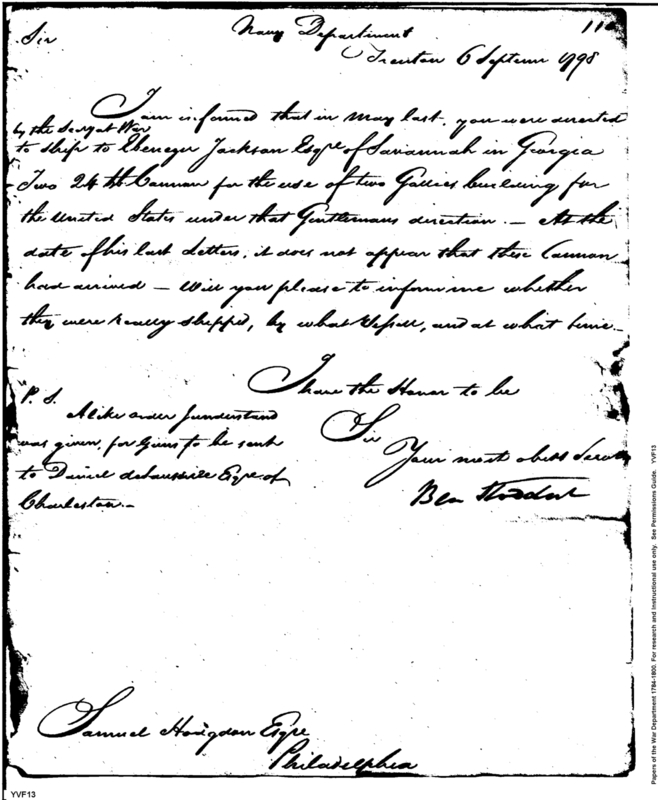 110
Navy Department
Sir
Trenton 6 Septem 1798
I am informed that in May last, you were directed
by the Secry at War
to ship to Ebenezer Jackson Esqre of Savannah in Georgia
Two 24 lb Cannon for the use of two Gallies building for
the United States under that Gentlemans direction. — At the
date of his last Letters, it does not appear that these Cannon
had arrived — Will you please to inform me whether
they were really shipped, by what Vessell, and at what time —
I have the Honor to be
Sir
Your most obedt Servn
Ben Stoddert
P. S.
A like order I understand
was given, for Guns to be sent
to Daniel Esqre of
Charleston. —
Samuel Hodgdon Esqre
Philadelphia
YVF13
Papers of the War Department 1784-1800. For research and instructional use only. See Permissions Guide. YVF13